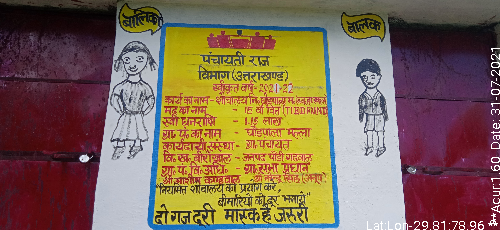 बालिका
बालक
पंचायती राज
विभाग (उत्तराखण्ड)
स्वीकृत वर्ष-2021-22
कार्य का नाम - शौचालय नि.
मद का नाम - 15 वां वित्त (TIED FUND)
स्वी. धनराशि - 1.15 लाख
ग्रा. पं. का नाम - घोड़पाला मल्ला
कार्यदायी संस्था - ग्रा. पंचायत
वि. ख. बीरोंखाल - जनपद पौड़ी गढ़वाल
ग्रा. पं. वि. अधि. - ग्रा. सभा प्रधान
"नियमित शौचालय का प्रयोग करे,
बीमारियों को दूर भगाये"
दो गज दूरी मास्क है जरुरी
Acur:1.60 Date: 31.07.2021
Lat:Lon-29.81:78.96